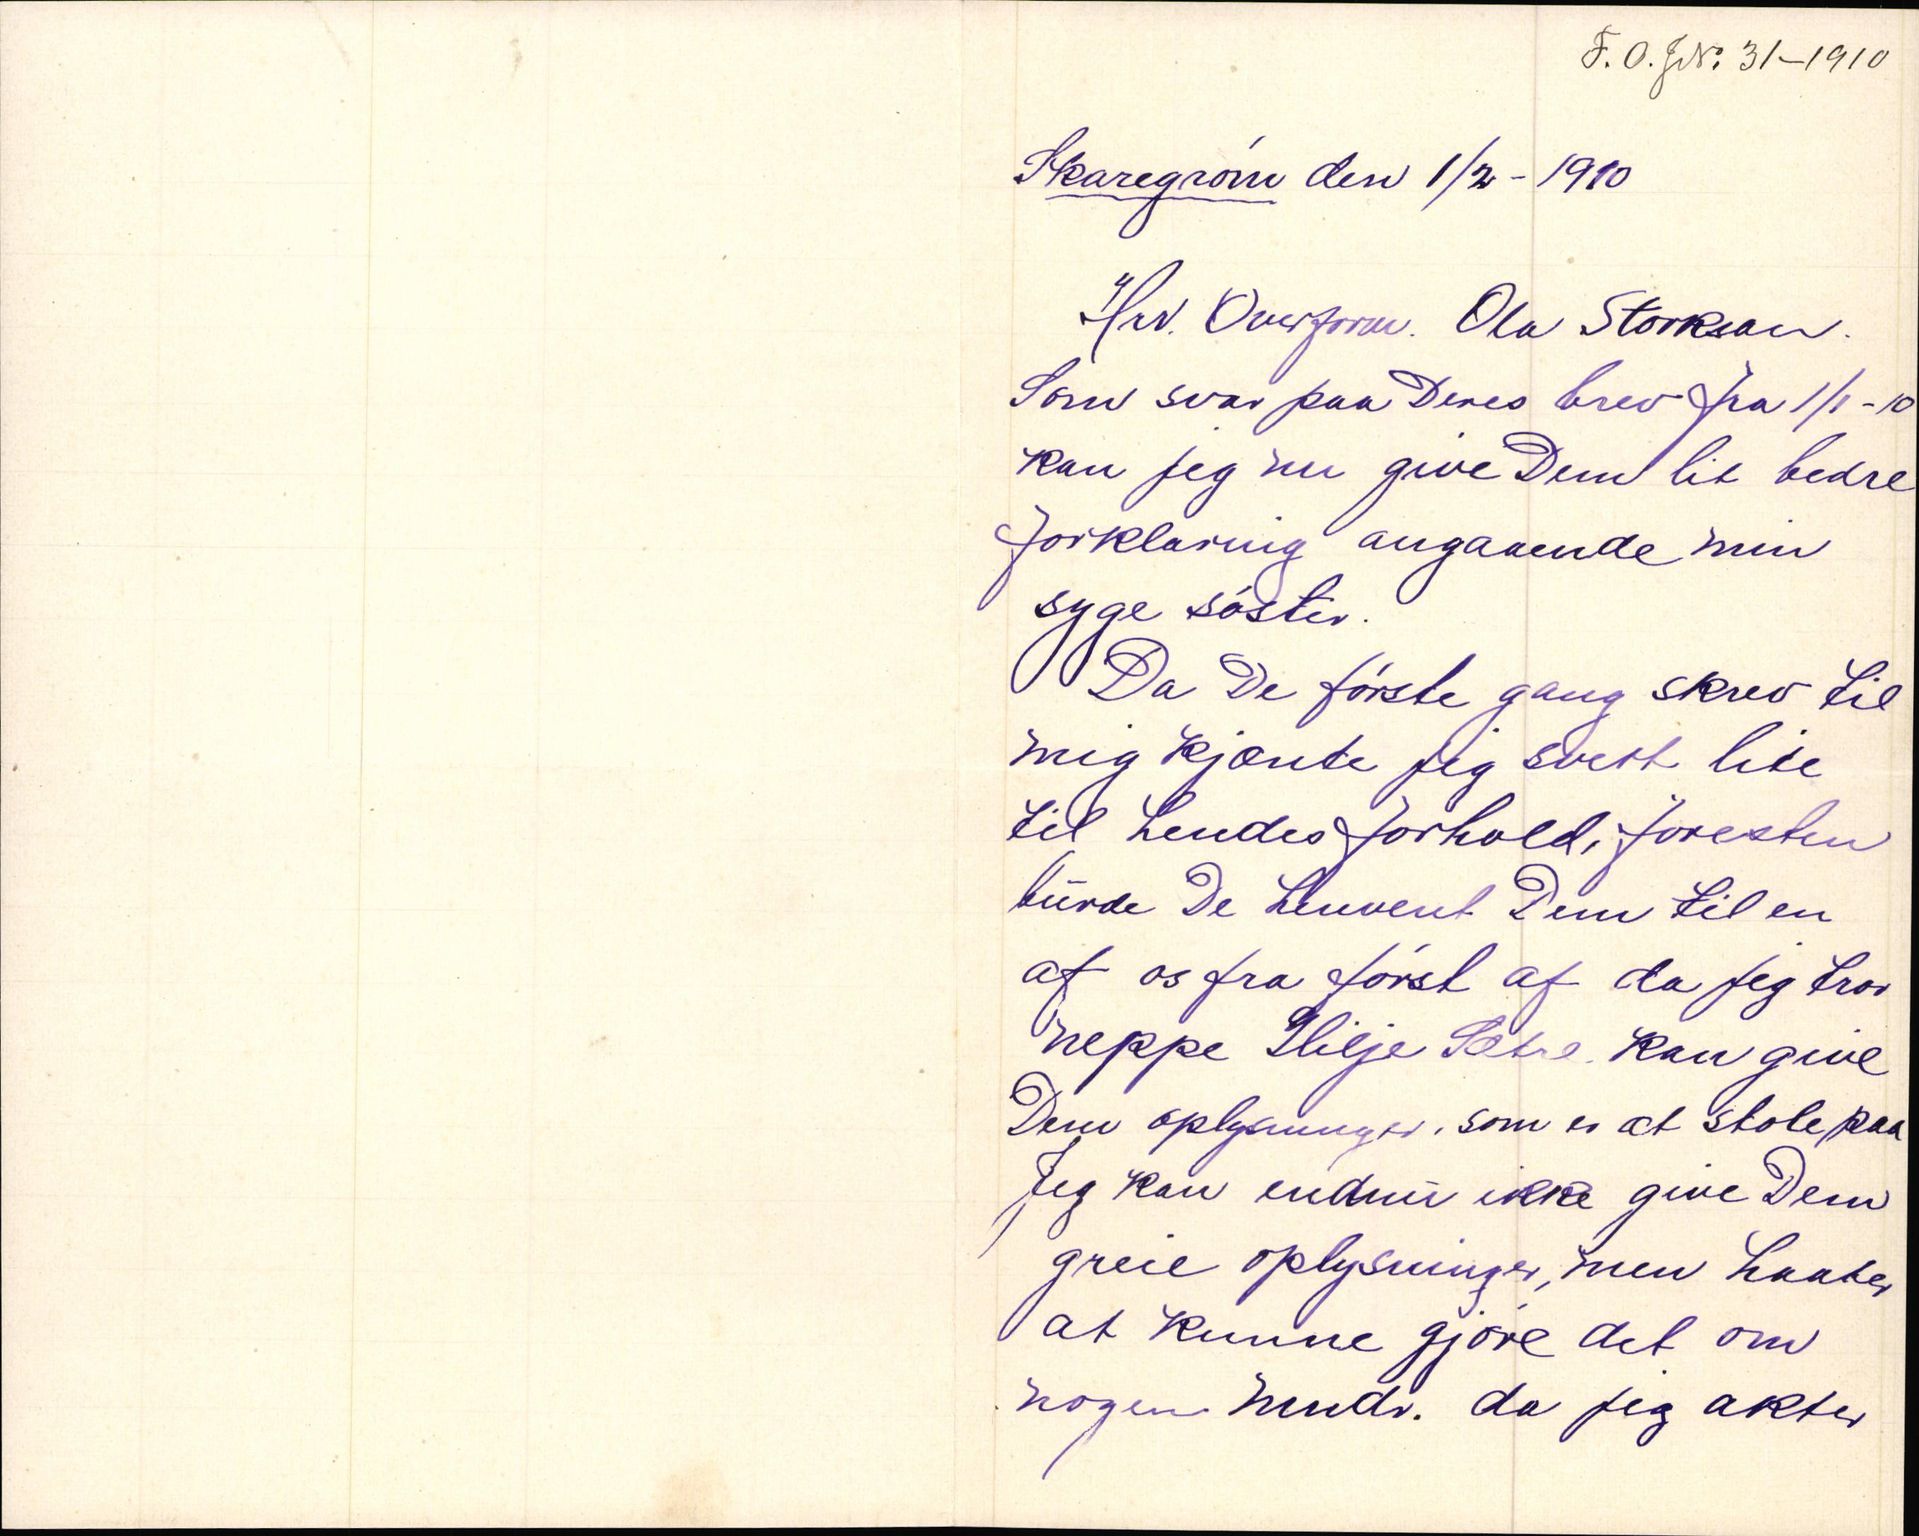 F. O. J№: 31-1910
Skaregrøm den 1/2 - 1910
Hrr. Overform. Ola Storksan.
Som svar paa Deres brev fra 1/1-10
kan jeg nu give Dem lit bedre
forklaring angaaende min
syge søster.
Da De første gang skrev til
mig kjænte jeg svert lite
til hendes forhold, foresten
burde De henvent Dem til en
af os fra først af da jeg tror
neppe Gilje Sætre kan give
Dem oplysninger. som er at stole paa
Jeg kan endnu ikke give Dem
greie oplysninger, men haaber
at kunne gjøre det om
nogen mndr. da jeg akter